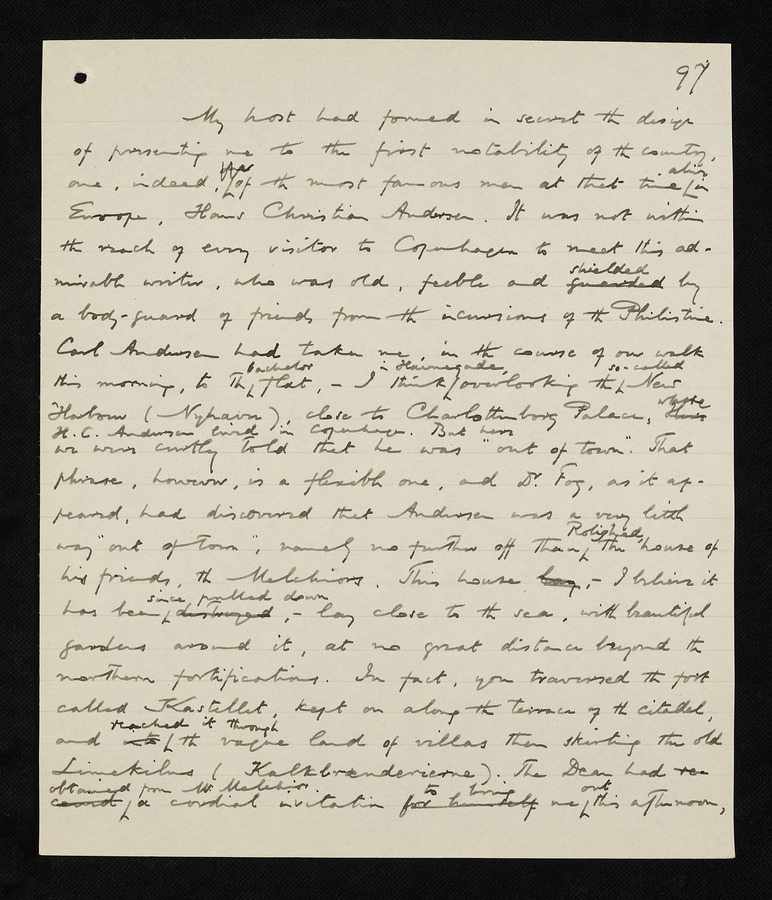 97
My host had formed in secret the design
of presenting me to the first notability of the country,
one, indeed, of the most famous men at that time alive in
Europe, Hans Christian Andersen. It was not within
the reach of every visitor to Copenhagen to meet this ad-
mirable writer, who was old, feeble and guarded shielded by
a body-guard of friends from the incursions of the Philistine.
Carl Andersen had taken me, in the course of our walk
this morning, to the bachelor flat, - I think in Havnegade, overlooking the so-called New
Harbour (Nyhavn), close to Charlottenborg Palace, where
H. C. Andersen lived in Copenhagen. But here
we were curtly told that he was "out of town". That
phrase, however, is a flexible one, and Dr. Fog, as it ap-
peared, had discovered that Andersen was a very little
way "out of town", namely no further off than Rolighed, the house of
his friends, the Melchiors. This house lay, - I believe it
has been destroyed since pulled down, - lay close to the sea, with beautiful
gardens around it, at no great distance beyond the
northern fortifications. In fact, you traversed the fort
called Kastellet, kept on along the terrace of the citadel,
and reached it through the vague land of villas then skirting the old
Limekilns (Kalkbrænderierne). The Dean had
obtained from Mr. Melchior a cordial invitation for himself to bring me out this afternoon,